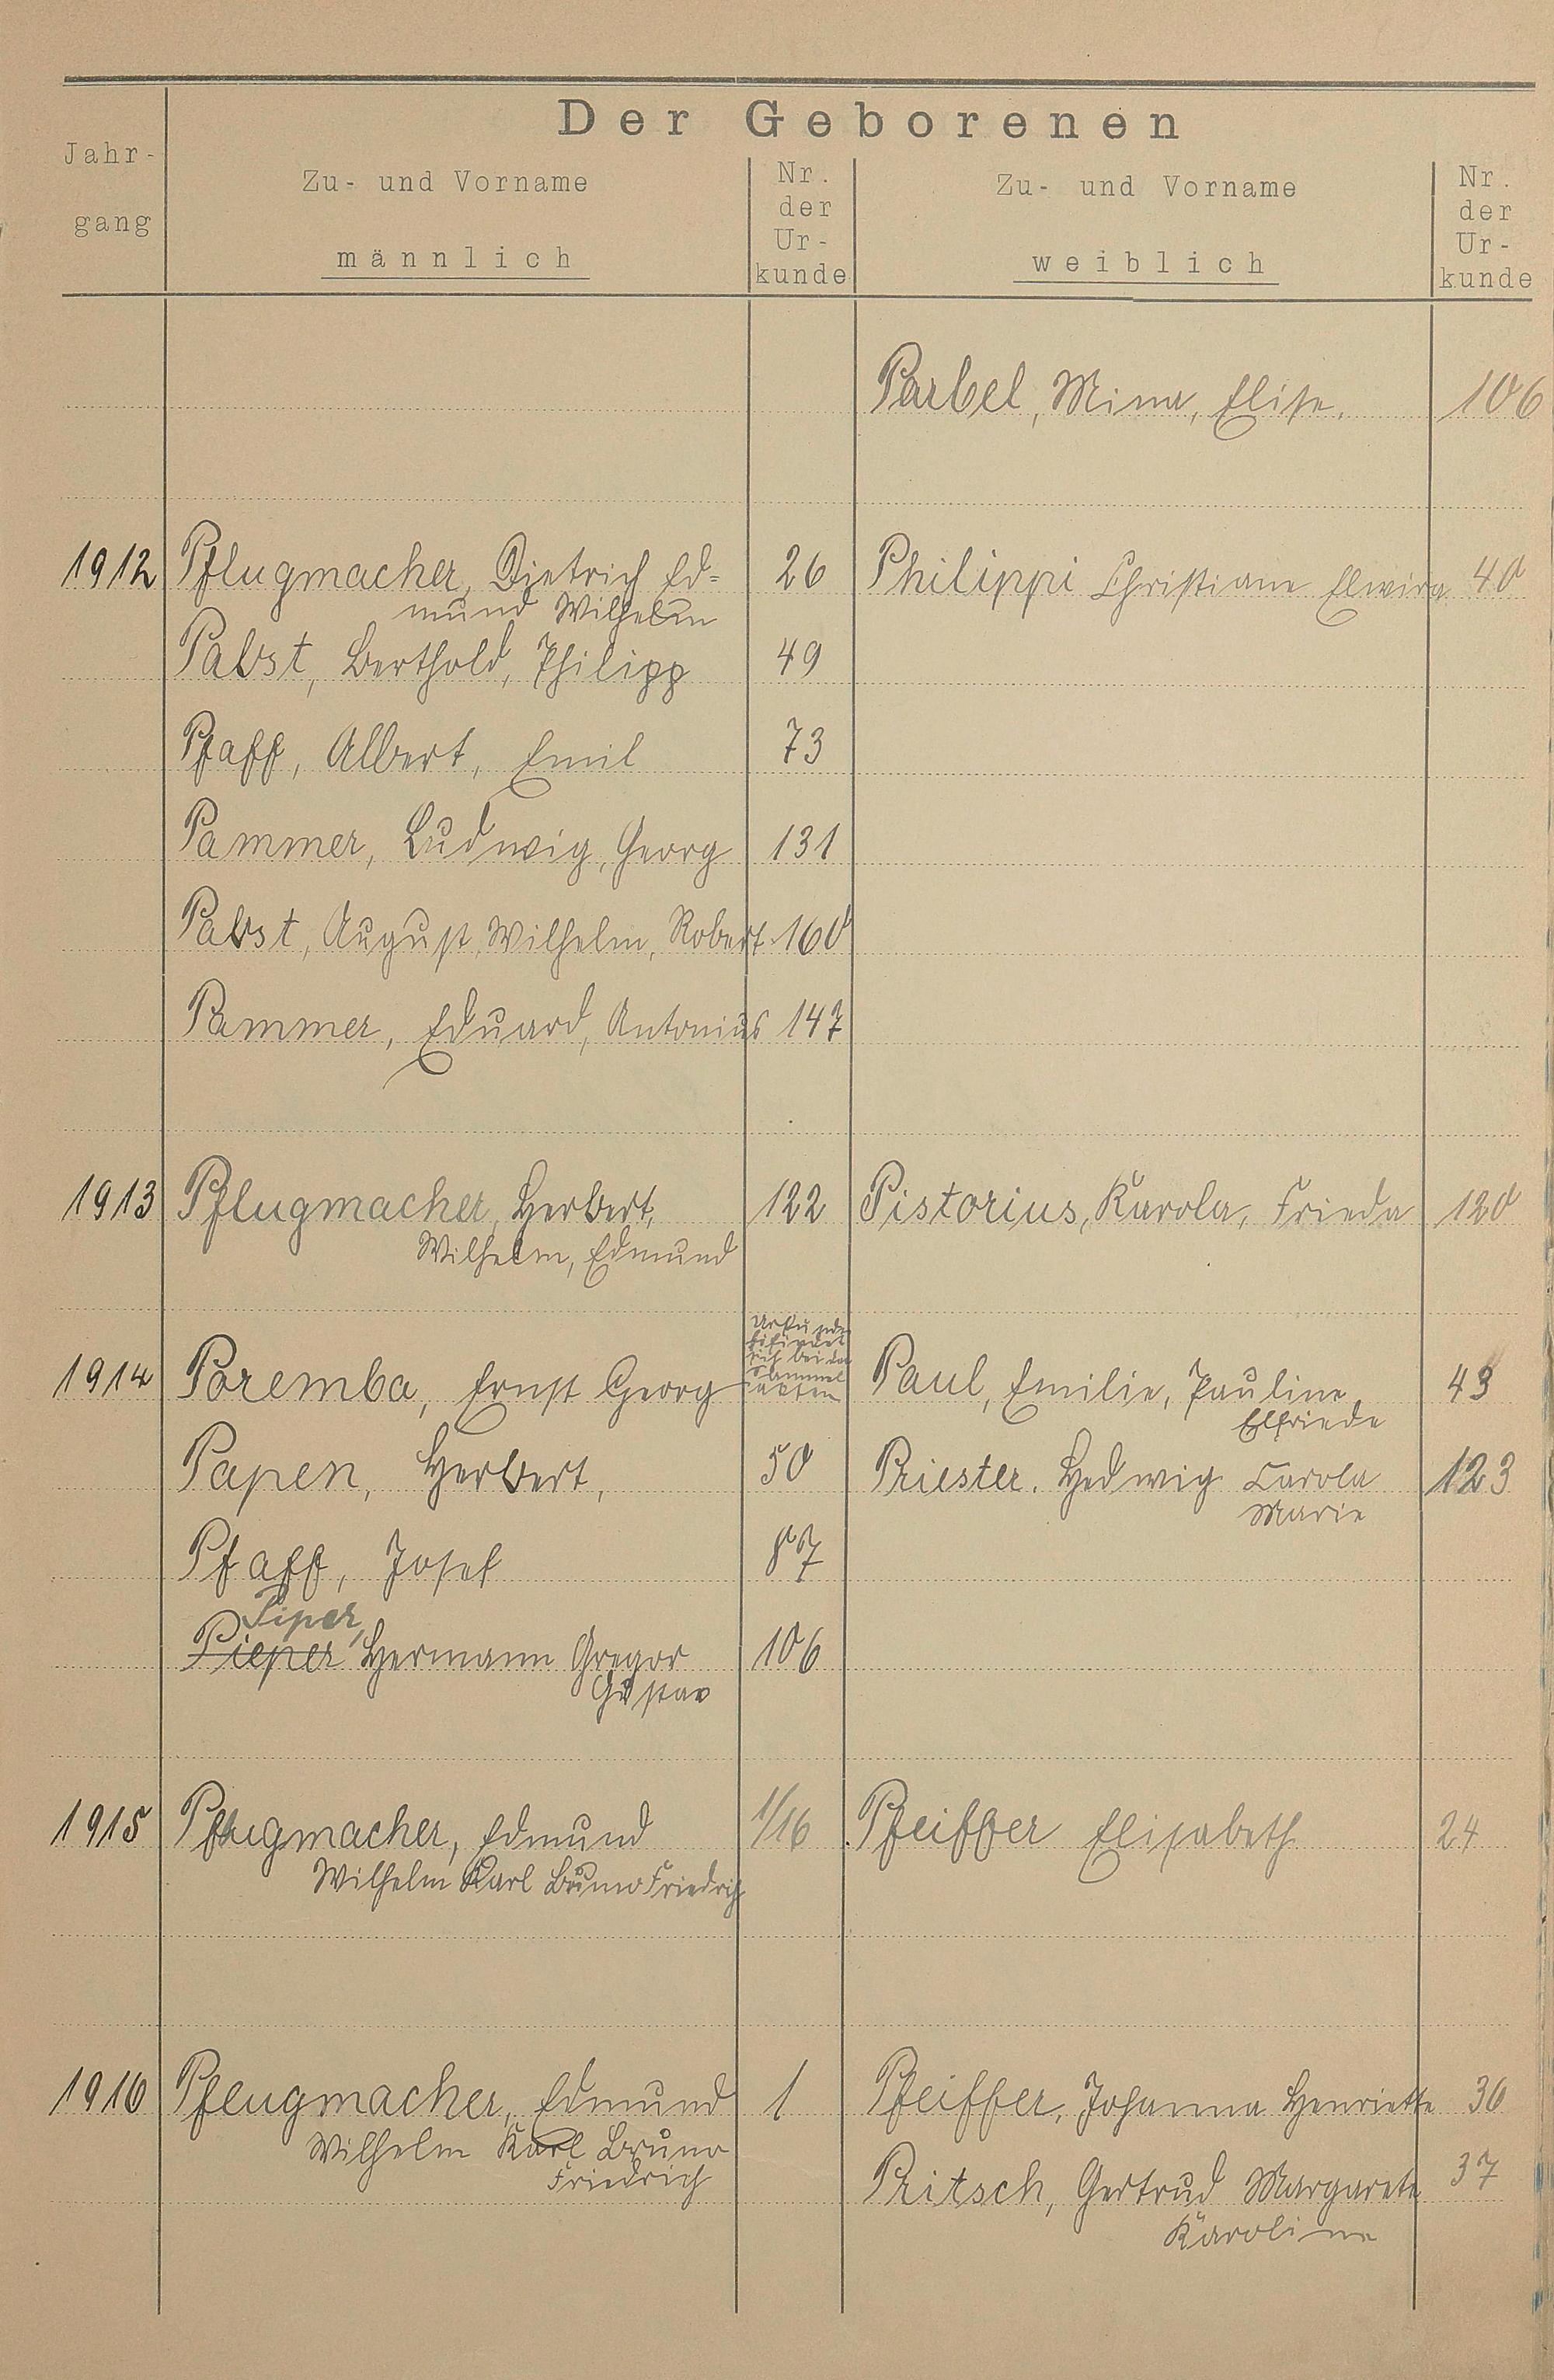 Der Geborenen
Jahr-
gang
Zu- und Vorname
männlich
Nr.
der
Ur-
kunde
Zu- und Vorname
weiblich
Nr.
der
Ur-
kunde
Parbel, Mina, Elise. 106
1912 Pflugmacher, Dietrich Ed- 26 Philippi Christiane Elwira 40
mund Wilhelm
Pabst, Berthold, Philipp 49
Pfaff, Albert, Emil 73
Pammer, Ludwig, Georg 131
Pabst, August, Wilhelm, Robert 160
Pammer, Eduard, Antonius 147
1913 Pflugmacher, Herbert, 122 Pistorius, Karola, Frieda 120
Wilhelm, Edmund
Urkunde
befindet
sich bei den
Sammel
akten
1914 Poremba, Ernst Georg Paul, Emilie, Pauline 43
Elfriede
Papen, Herbert, 50 Priester, Hedwig Carola 123
Marie
Pfaff, Josef 87
Piper,
Pieper Hermann Gregor 106
Gustav
1915 Pflugmacher, Edmund 1/16 Pfeiffer Elisabeth 24
Wilhelm Karl Bruno Friedrich
1916 Pflugmacher, Edmund 1 Pfeiffer, Johanna Henriette 36
Wilhelm Karl Bruno
Friedrich
Pritsch, Gertrud Margarete 37
Karoline